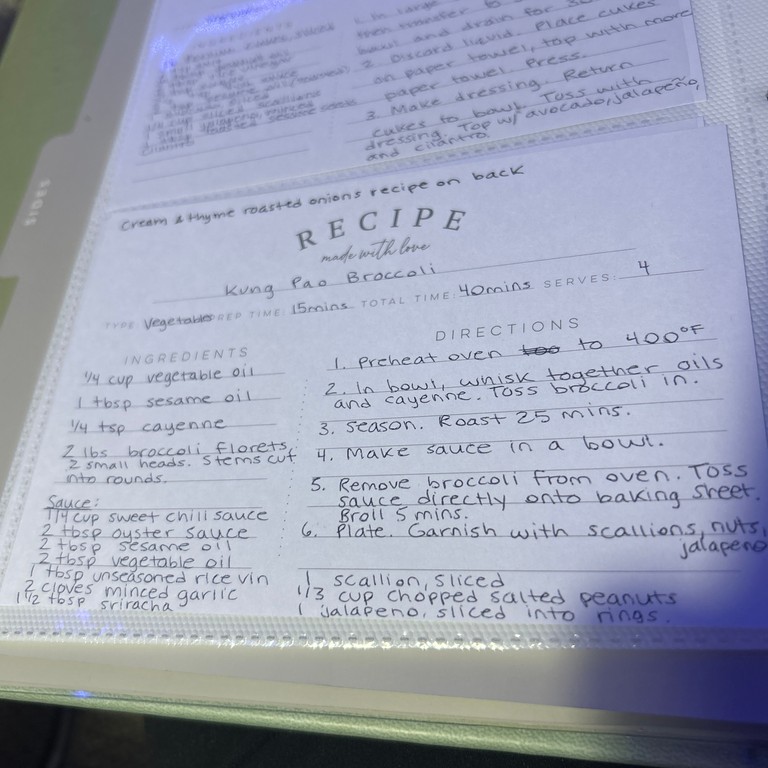 INGREDIENTS
1. In large
then transfer to
bowl and drain for 30
2. Discard liquid. Place cukes
on paper towel, top with more
paper towel. Press.
3. Make dressing. Return
cukes to bowl. Toss with
dressing. Top w/ avocado, jalapeño,
and cilantro.
sliced scallions
cilantro
SIDES
Cream & thyme roasted onions recipe on back
RECIPE
made with love
Kung Pao Broccoli
TYPE: Vegetables PREP TIME: 15mins TOTAL TIME: 40mins SERVES: 4
INGREDIENTS
1/4 cup vegetable oil
1 tbsp sesame oil
1/4 tsp cayenne
2 lbs broccoli florets,
2 small heads. Stems cut
into rounds.
Sauce:
1/4 cup sweet chili sauce
2 tbsp oyster sauce
2 tbsp sesame oil
2 tbsp vegetable oil
1 tbsp unseasoned rice vin
2 cloves minced garlic
1 1/2 tbsp sriracha
DIRECTIONS
1. Preheat oven to 400°F
2. In bowl, whisk together oils
and cayenne. Toss broccoli in.
3. Season. Roast 25 mins.
4. Make sauce in a bowl.
5. Remove broccoli from oven. Toss
sauce directly onto baking sheet.
Broil 5 mins.
6. Plate. Garnish with scallions, nuts,
jalapeno
1 scallion, sliced
1/3 cup chopped salted peanuts
1 jalapeno, sliced into rings.